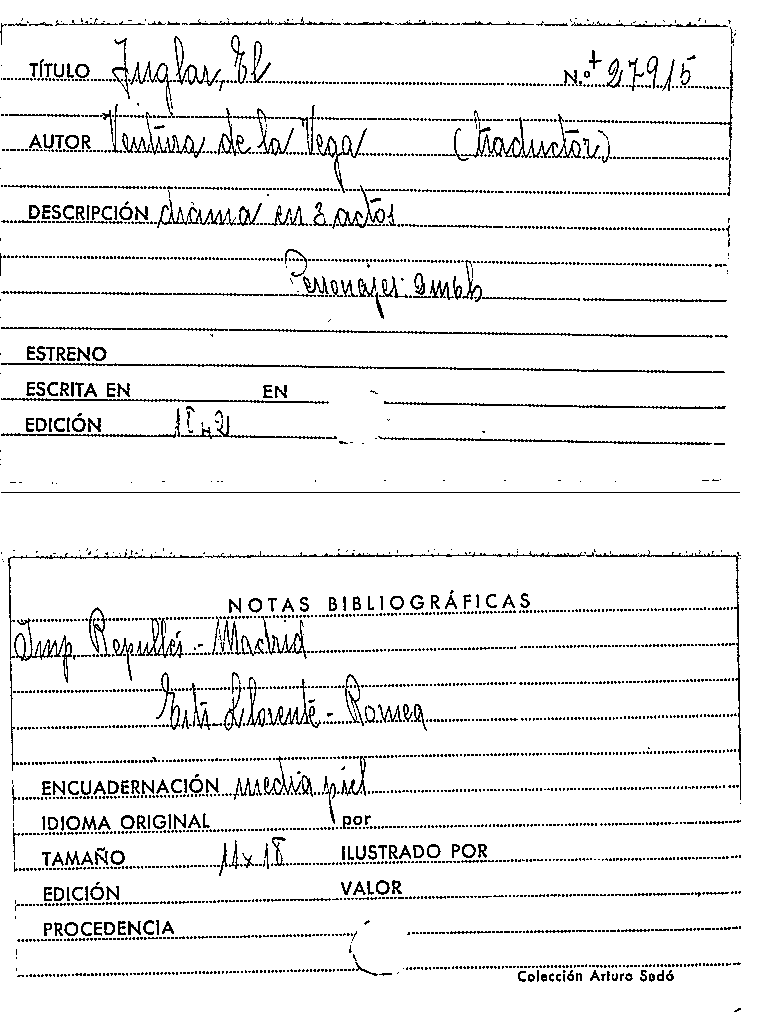 TÍTULO Juglar, El N.º + 27915
AUTOR Ventura de la Vega (traductor)
DESCRIPCIÓN drama en 3 actos
Personajes: 9m6h
ESTRENO
ESCRITA EN EN
EDICIÓN 1842
NOTAS BIBLIOGRÁFICAS
Imp. Repullés - Madrid
Llorente - Romea
ENCUADERNACIÓN media piel
IDIOMA ORIGINAL por
TAMAÑO 11x18 ILUSTRADO POR
EDICIÓN VALOR
PROCEDENCIA
Colección Arturo Sedó